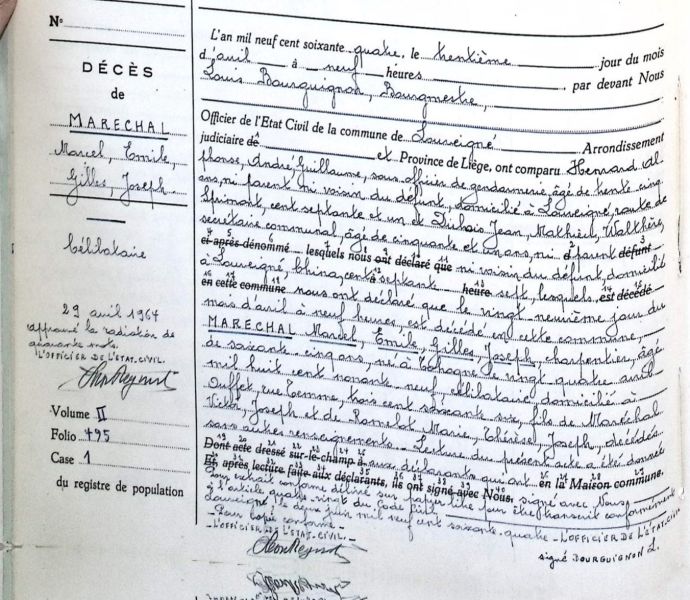 N°
DÉCÈS
de
MARECHAL
Marcel, Emile,
Gilles, Joseph
Célibataire
29 avril 1964
approuvé la radiation de
quarante mots.
L'OFFICIER DE L'ETAT-CIVIL.
Volume II
Folio 495
Case 1
du registre de population
L'an mil neuf cent soixante quatre, le trentième jour du mois
d'avril à neuf heures, par devant Nous
Louis Bourguignon, Bourgmestre,
Officier de l'Etat Civil de la commune de Louveigné Arrondissement
judiciaire de et Province de Liège, ont comparu Henrard Al
phonse, André, Guillaume, sous officier de gendarmerie, âgé de trente cinq
ans, ni parent ni voisin du défunt, domicilié à Louveigné, route de
Sprimont, cent septante et un et Dubois Jean, Mathieu, Walthère,
secrétaire communal, âgé de cinquante et un ans, ni parent
ci-après dénommé lesquels nous ont déclaré que ni voisin du défunt, domicilié défunt
à Louveigné, cent septante heure sept, lesquels est décédé
en cette commune nous ont déclaré que le vingt neuvième jour du
mois d'avril à neuf heures, est décédé en cette commune,
MARECHAL Marcel, Emile, Gilles, Joseph, charpentier, âgé
de soixante cinq ans, né à le vingt quatre avril
mil huit cent nonante neuf, célibataire domicilié à
Ouffet, rue Temme, trois cent soixante six, fils de Maréchal
Victor, Joseph et de Romelot Marie, Thérèse, Joseph, décédés.
sans autres renseignements. Lecture du présent acte a été donnée
Dont acte dressé sur-le-champ à aux déclarants qui ont en la Maison commune.
Et après lecture faite aux déclarants, ils ont signé avec Nous. signé avec Nous.
Pour extrait conforme délivré sur papier libre pour être transcrit conformément
à l'article quatre vingt du Code Civil.
Louveigné le deux juin mil neuf cent soixante quatre - L'OFFICIER DE L'ETAT-CIVIL
- Pour copie conforme -
signé BOURGUIGNON L.
- L'OFFICIER DE L'ETAT-CIVIL -